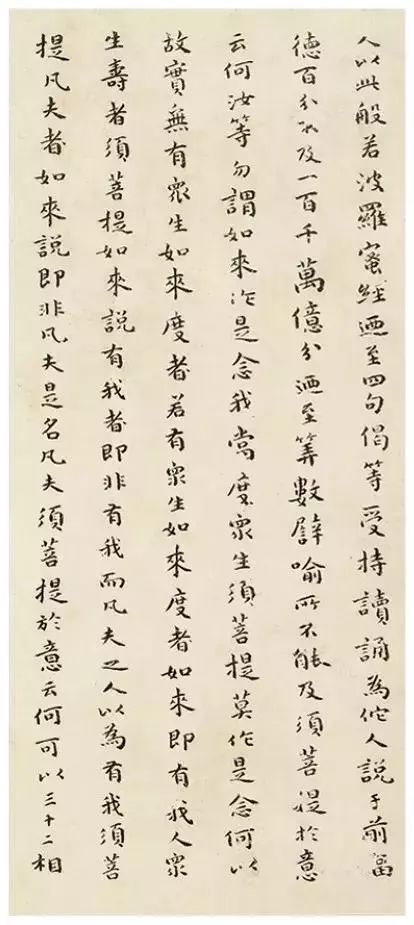 人以此般若波羅蜜經廼至四句偈等受持讀誦為佗人説于前福
德百分不及一百千萬億分廼至筭數譬喻所不能及須菩提於意
云何汝等勿謂如來作是念我當度眾生須菩提莫作是念何以
故實無有眾生如來度者若有眾生如來度者如來即有我人眾
生壽者須菩提如來説有我者即非有我而凡夫之人以為有我須菩
提凡夫者如來説即非凡夫是名凡夫須菩提於意云何可以三十二相